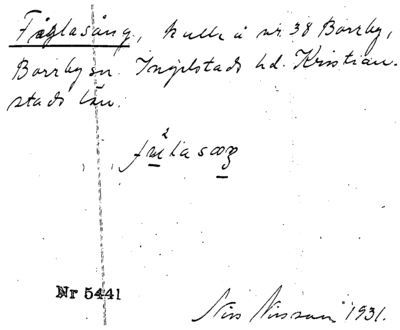 Fåglasång, kulle å nr 38 Borrby,
Borrby sn. Ingelstads hd. Kristian-
stads län.
Nr 5441
Nils Nilsson 1931.